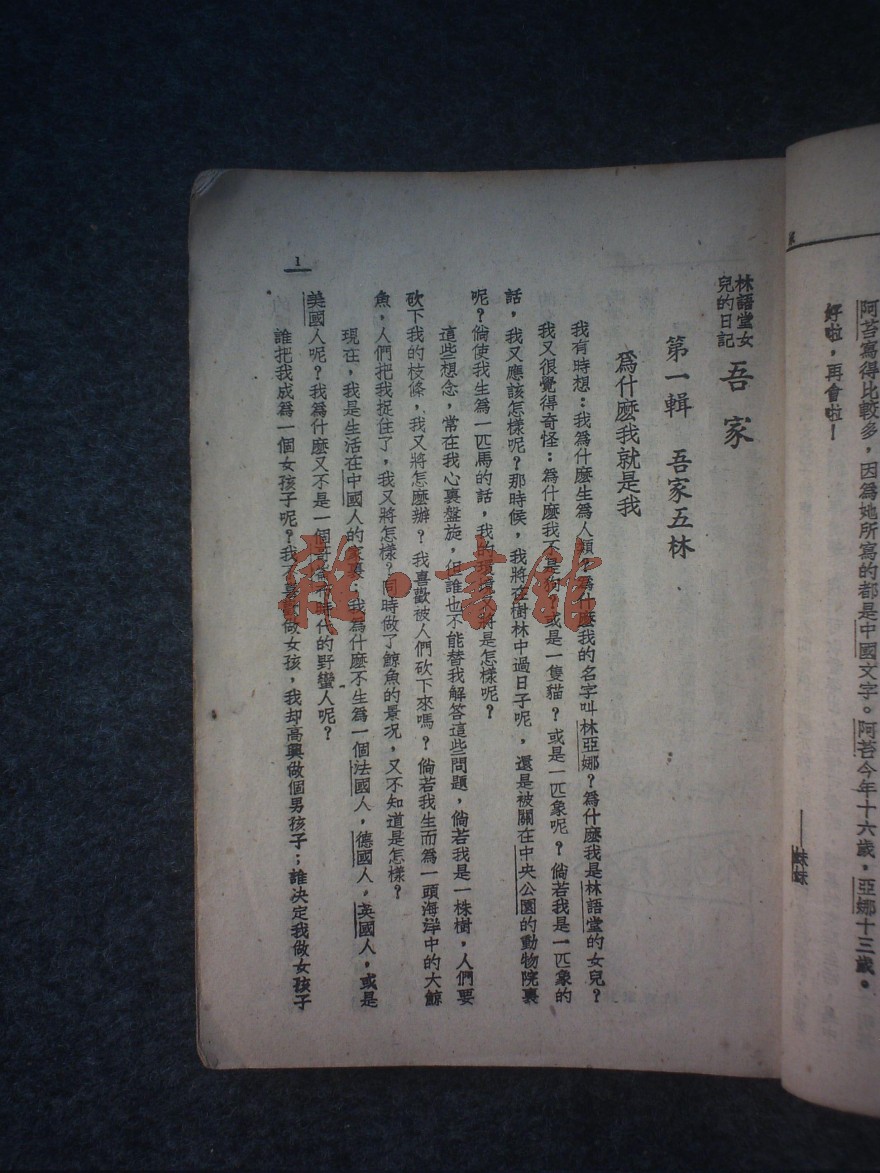 阿苔寫得比較多，因爲她所寫的都是中國文字。阿苔今年十六歲，亞娜十三歲。
好啦，再會啦！
——妹妹
林語堂女
兒的日記
吾家
第一輯　吾家五林
爲什麽我就是我
我有時想：我爲什麽生爲人類？爲什麽我的名字叫林亞娜？爲什麽我是林語堂的女兒？
我又很覺得奇怪：爲什麽我不是狗？或是一隻貓？或是一匹象呢？倘若我是一匹象的
話，我又應該怎樣呢？那時候，我將在樹林中過日子呢，還是被關在中央公園的動物院裏
呢？倘使我生爲一匹馬的話，我的環境又將是怎樣呢？
這些想念，常在我心裏盤旋，但誰也不能替我解答這些問題，倘若我是一株樹，人們要
砍下我的枝條，我又將怎麽辦？我喜歡被人們砍下來嗎？倘若我生而爲一頭海洋中的大鯨
魚，人們把我捉住了，我又將怎樣？同時做了鯨魚的景况，又不知道是怎樣？
現在，我是生活在中國人的家裏；我爲什麽不生爲一個法國人，德國人，英國人，或是
美國人呢？我爲什麽又不是一個時代的野蠻人呢？
誰把我成爲一個女孩子呢？我不喜歡做女孩，我却高興做個男孩子；誰決定我做女孩子
1
雅·書館